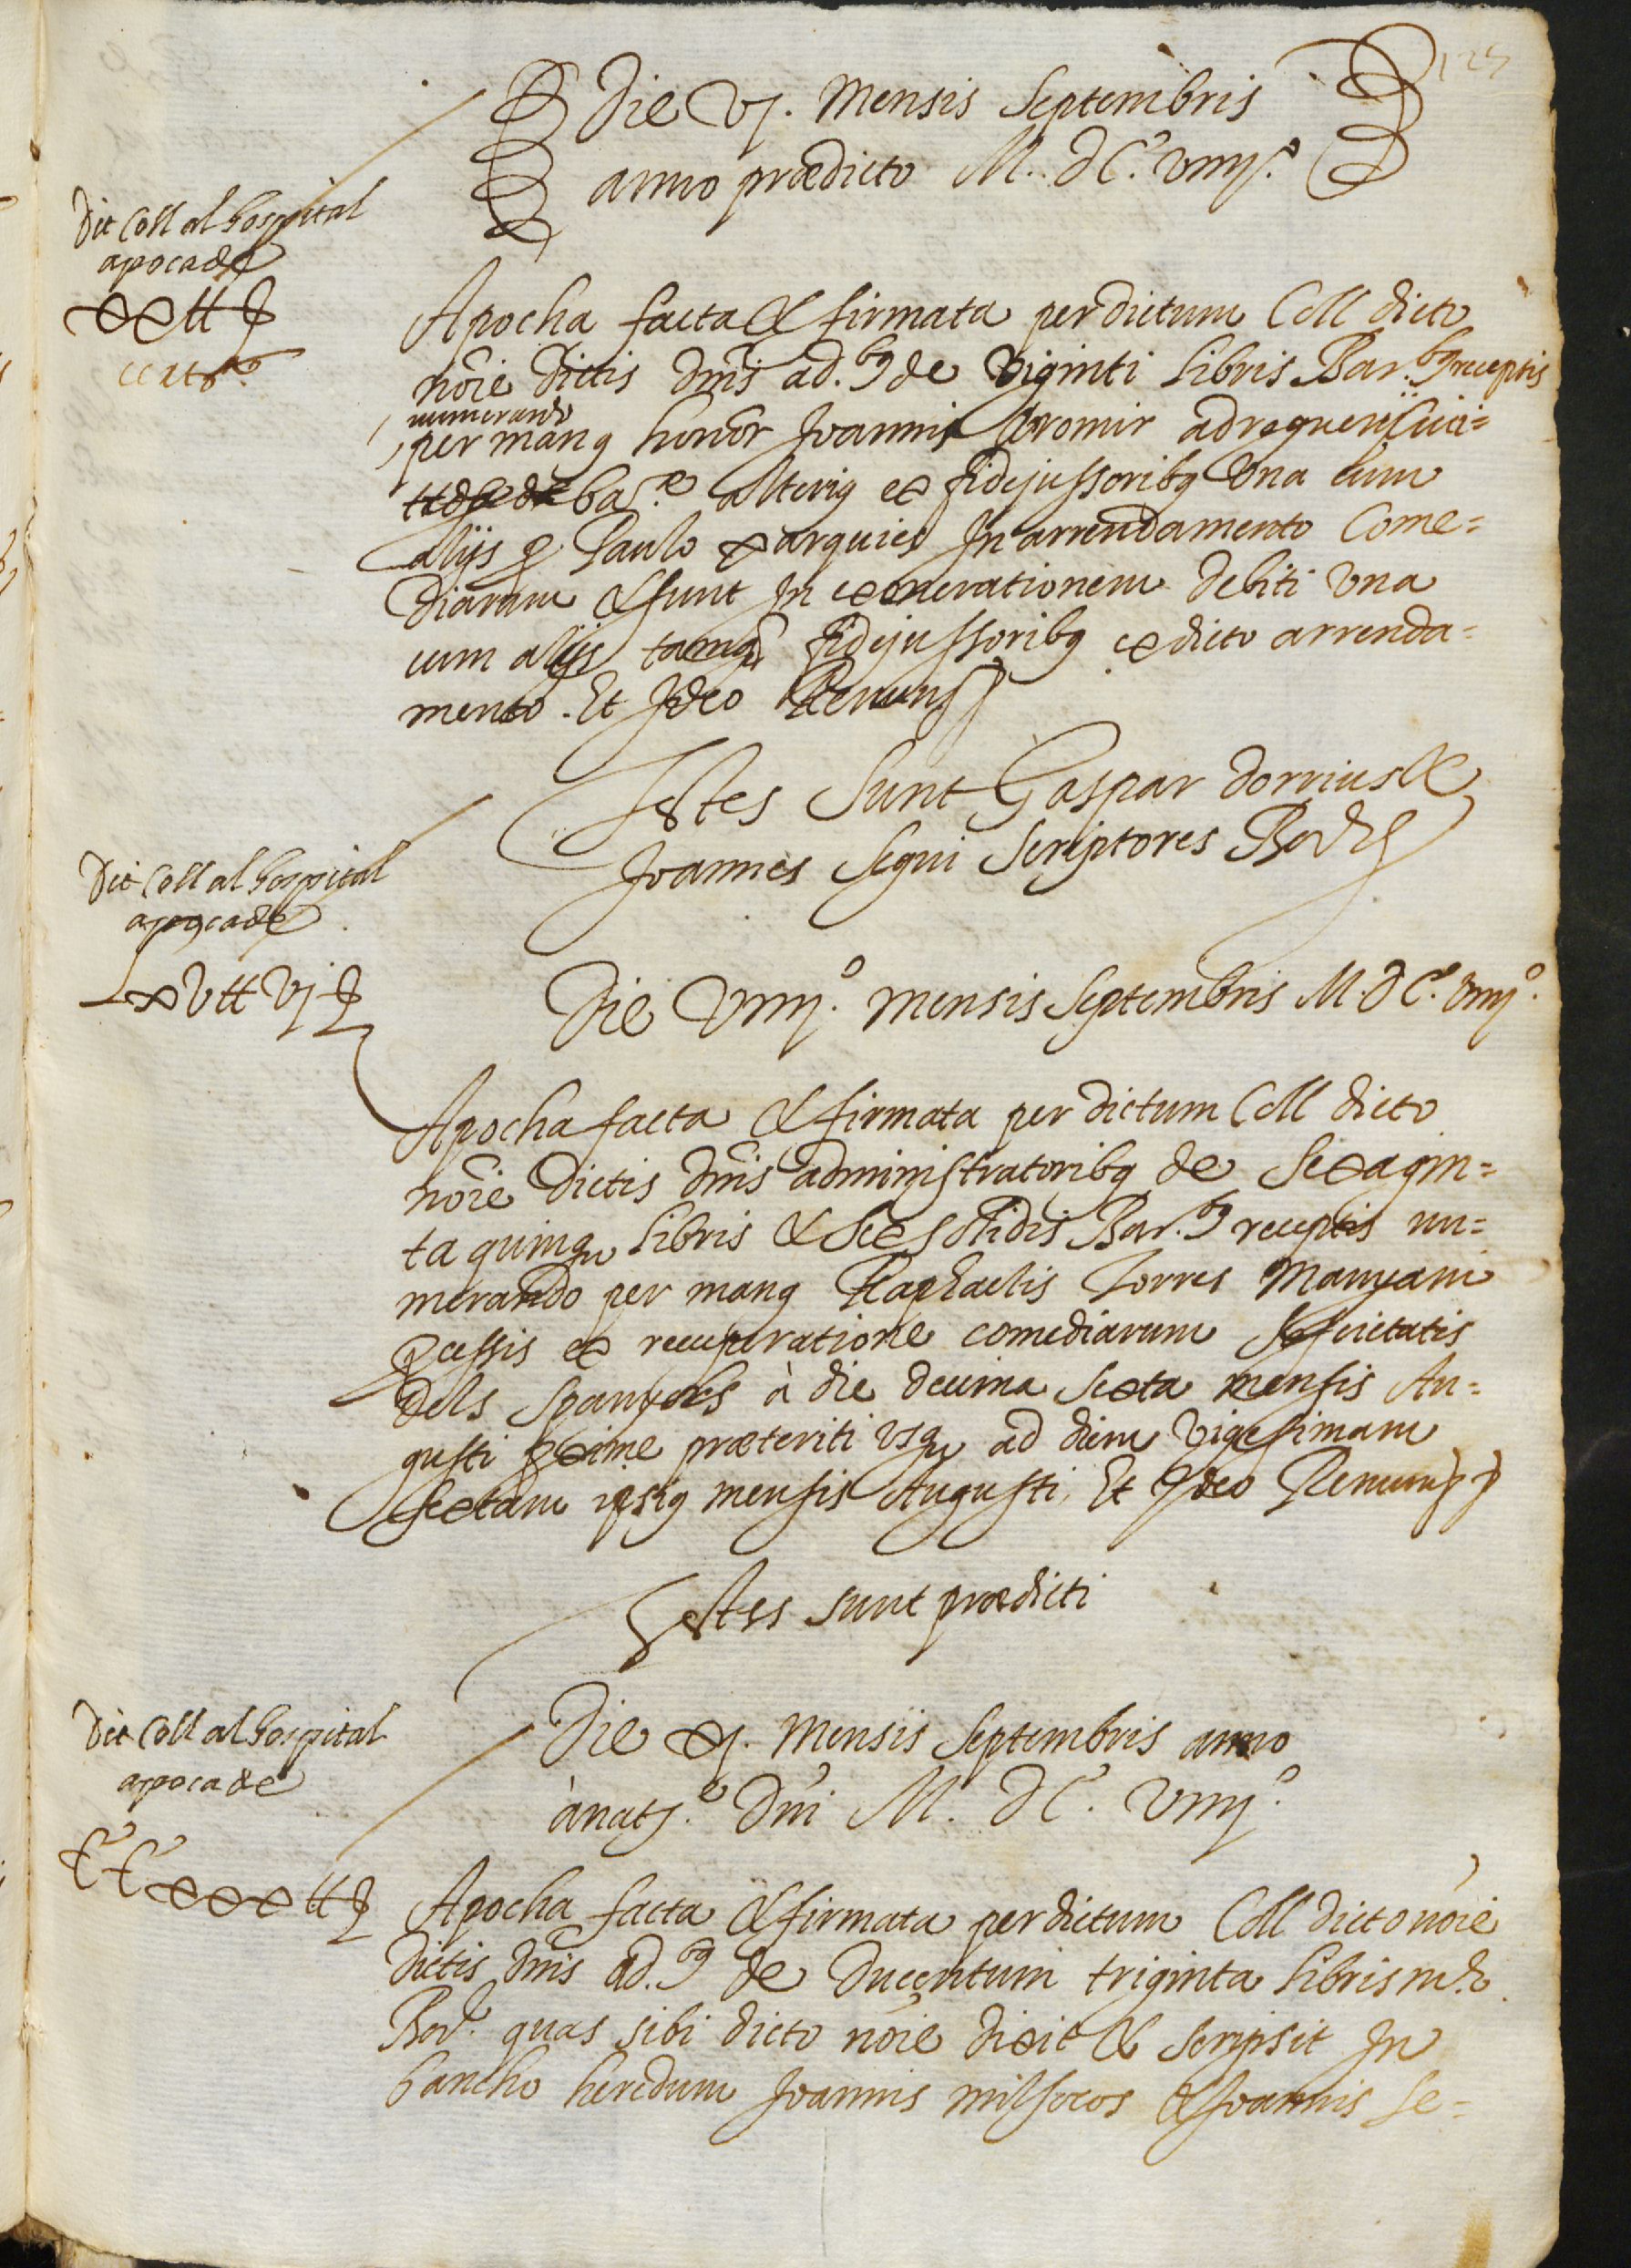 125
Die vj. Mensis Septembris
anno prædicto M. DC. viiij.º
Dit Coll al hospital
apoca de
xx ll ꝭ
Apocha facta & firmata per dictum Coll dicto
nõie dictis dñis ad.bꝰ de viginti libris Bar.bꝰ receptis
numerando
per manꝰ honor Joannis
ba alteriꝰ ex fidejussoribꝰ una cum
alijs ꝓ Paulo xarquies In arrendamento Come=
diarum & sunt In exonerationem debiti una
cum alijs tamqȝ fidejussoribꝰ ex dicto arrenda=
mento. Et Ideo Renunꝭ
Testes sunt Gaspar dorrius &
Joannes Segui scriptores Barꝭ
Dit Coll al hospital
apoca de
Lxv ll vj ꝭ
Die viiij.º mensis Septembris M. DC. viiij.º
Apocha facta & firmata per dictum Coll dicto
nõie dictis dñis administratoribꝰ de sexagin=
ta quinqȝ libris & sex solidis Bar.bꝰ receptis nu=
merando per manꝰ Raphaelis Torres Manyani
ꝓcessis ex recuperatione comediarum societatis
dels Spanyols à die decima sexta mensis Au=
gusti ꝓxime præteriti usqȝ ad diem vigesimam
sextam ipsiꝰ mensis Augusti, Et Ideo Renunꝭ
Testes sunt prædicti
Dit Coll al hospital
apoca de
CCxxx ll ꝭ
Die xj. Mensis Septembris anno
à natꝭ.e Dñi M. DC. viiij.º
Apocha facta & firmata per dictum Coll dicto nõie
dictis dñis ad.bꝰ de Ducentum triginta libris
Bar. quas sibi dicto nõie dixit & scripsit In
bancho heredum Joannis milsocos & Joannis Se=